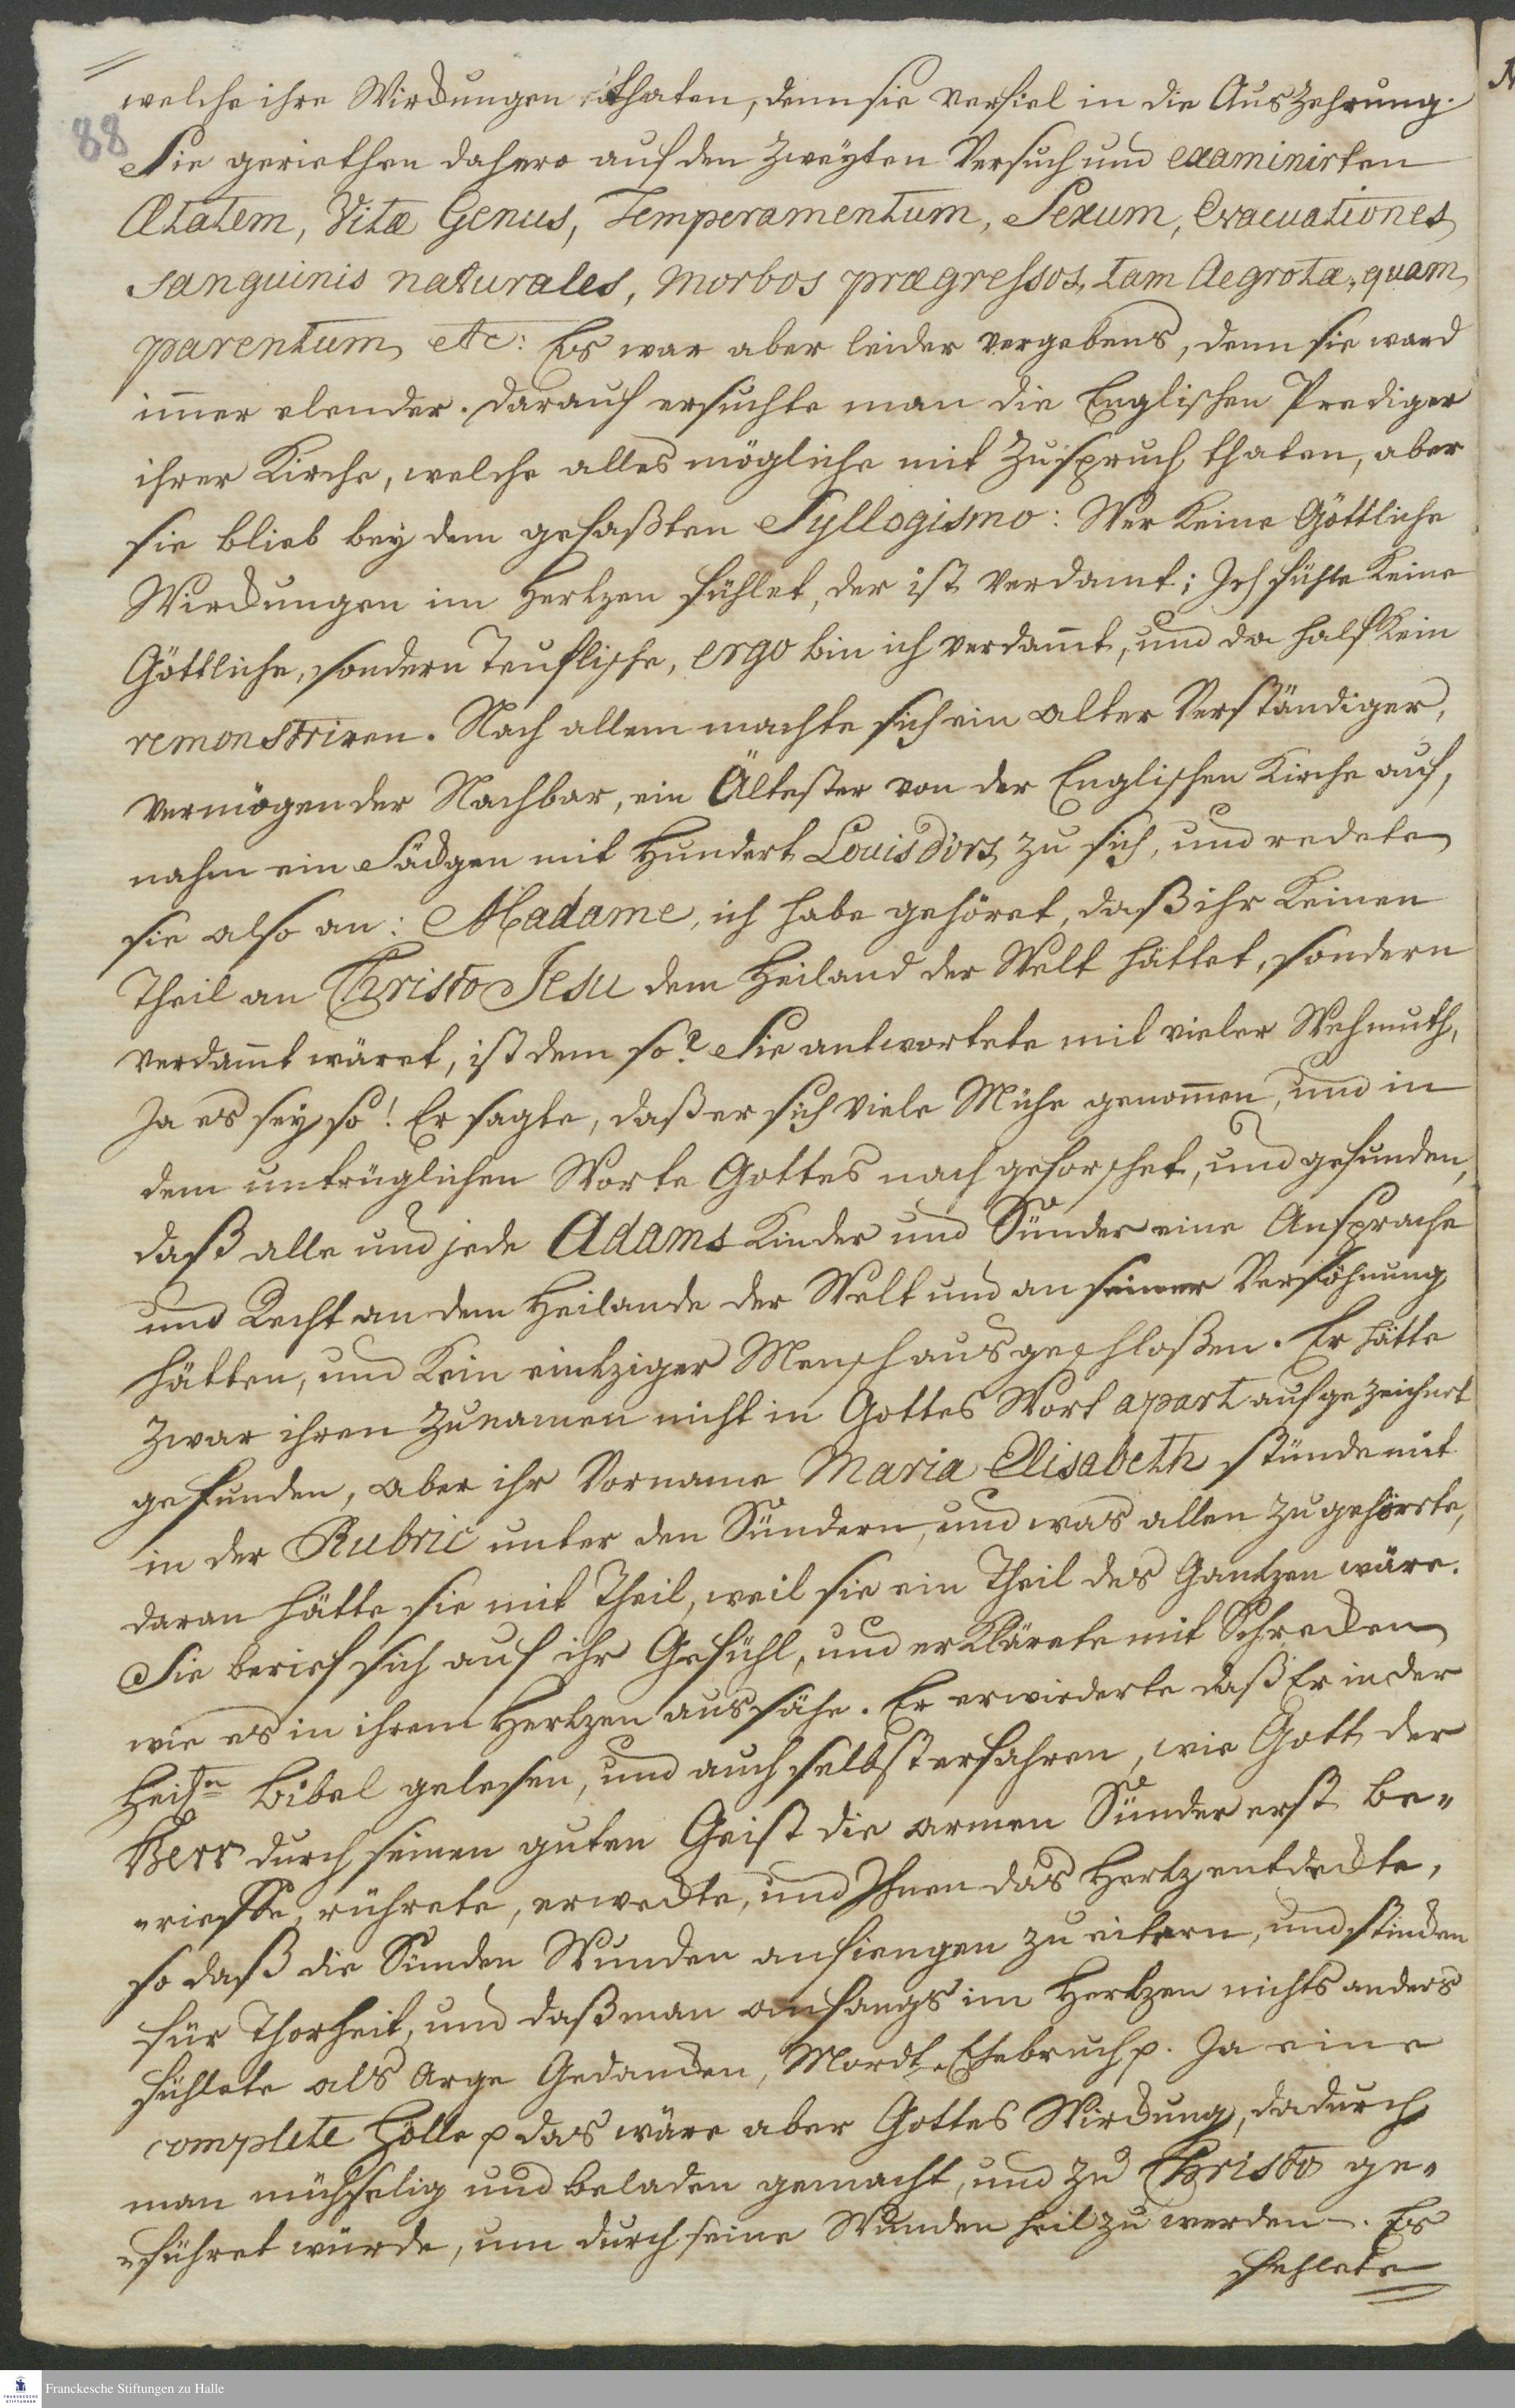 welche ihre Wirckungen thaten, denn sie verfiel in die Auszehrung.
88
Sie geriethen dahero auf den Zweyten Versuch und examinirten
Ætatem, Vitæ Genus, Temperamentum, Sexum, Evacuationes
sanguinis naturales, morbos prægressos, tam Aegrotæ, quam
parentum etc: Es war aber leider vergebens, denn sie ward
im̄er elender. Darauf ersuchte man die Englischen Prediger
ihrer Kirche, welche alles mögliche mit Zuspruch thaten, aber
sie blieb bey dem gefaßten Syllogismo: Wer keine Göttliche
Wirckungen im Hertzen fühlet, der ist verdamt; Ich fühle keine
Göttliche, sondern Teuflische, ergo bin ich verdam̄t, und da half kein
remonstriren. Nach allem machte sich ein alter Verständiger,
vermögender Nachbar, ein Ältester von der Englischen Kirche auf,
nahm ein Säckgen mit Hundert Louisdòrs zu sich, und redete
sie also an: Madame, ich habe gehöret, daß ihr keinen
Theil an Christo Jesu dem Heiland der Welt hättet, sondern
verdam̄t wäret, ist dem so? Sie antwortete mit vieler Wehmuth,
Ja es sey so! Er sagte, daß er sich viele Mühe genom̄en, und in
dem untrüglichen Worte Gottes nach geforschet, und gefunden,
daß alle und jede Adams Kinder und Sünder eine Ansprache
und Recht an dem Heilande der Welt und an seiner Versöhnung
hätten, und kein eintziger Mensch ausgeschloßen. Er hätte
zwar ihren Zunamen nicht in Gottes Wort apart aufgezeichnet
gefunden, aber ihr Vorname Maria Elisabeth stünde mit
in der Rubric unter den Sündern, und was allen zugehörte,
daran hätte sie mit Theil, weil sie ein Theil des Gantzen wäre.
Sie berief sich auf ihr Gefühl, und erklärete mit Schrecken
wie es in ihrem Hertzen aussähe. Er erwiederte daß Er in der
Heil.n Bibel gelesen, und auch selbst erfahren, wie Gott der
Herr durch seinen guten Geist die armen Sünder erst be-
-rieffe, rührete, erweckte, und Ihnen das Hertz entdeckte,
so daß die Sünden Wunden anfiengen zu eitern, und stincken
für Thorheit, und daß man anfangs im Hertzen nichts anders
fühlete als Arge Gedancken, Mordt, Ehebruch p. Ja eine
complete Hölle p das wäre aber Gottes Wirckung, dadurch
man mühselig und beladen gemacht, und zu Christo ge-
-führet würde, um durch seine Wunden heil zu werden. Es
fehlete
Franckesche Stiftungen zu Halle